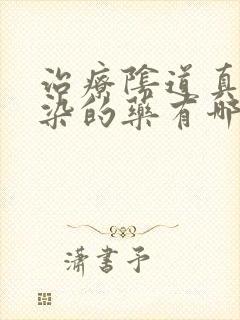 治療陰道真
染的藥有哪
瀟書予